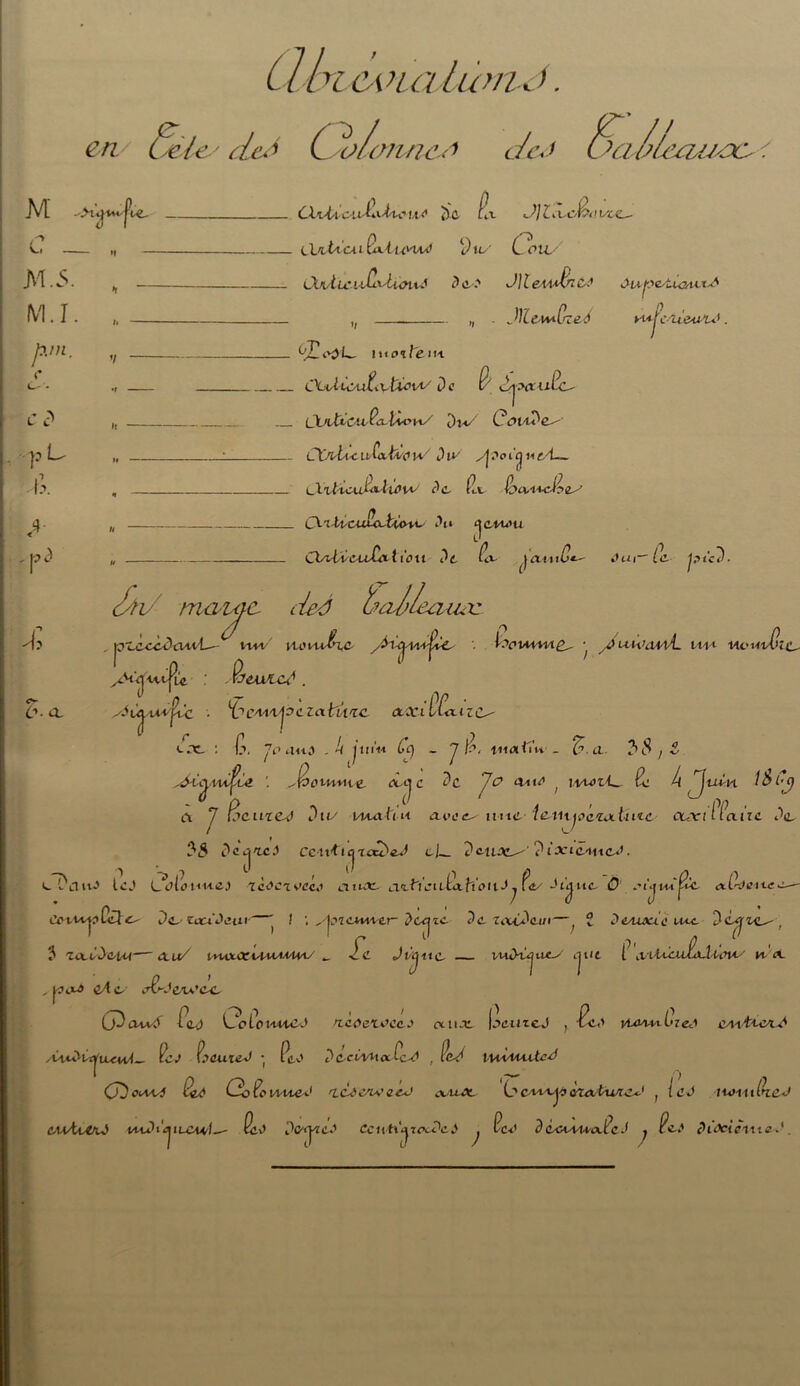 Abréviations.
en Tête des Colonnes des Tableaux.
M signifie Articulations de la Mâchoire
C „ Articulations du Cou
M.S. „ Articulations des Membres supérieurs
M.I. „ „ „ Membres inférieurs.
p.m. „ Post mortem
E. „ Articulation de l'Épaule
c d „ Articulation du Coude
pt „ Articulation du poignet
h. „ Articulation de la hanche
g. „ Articulation du genou
pd „ Articulation de la jambe sur le pied.
En marge des Tableaux
h précédant un nombre signifie : homme ; suivant un nombre
signifie : heures.
T. a. signifie : Température axillaire
Ex : h. 70 ans. 4 juin 69 – 7 h. matin – T. a. 38,2
signifie : homme âgé de 70 ans, mort le 4 Juin 1869
à 7 heures du matin avec une température axillaire de
38 degrés centigrades et deux dixièmes.
Dans les Colonnes réservées aux articulations, le signe 0 signifie absence
complète de raideur, 1 : premier degré de raideur, 2 deuxième degré,
3 raideur au maximum – Le signe — indique que l'articulation n'a
pas été observée
Dans les Colonnes réservées aux heures, les nombres entiers
indiquent les heures ; les décimales, les minutes
Dans les Colonnes réservées aux Températures, les nombres
entiers indiquent les degrés centigrades ; les décimales, les dixièmes.